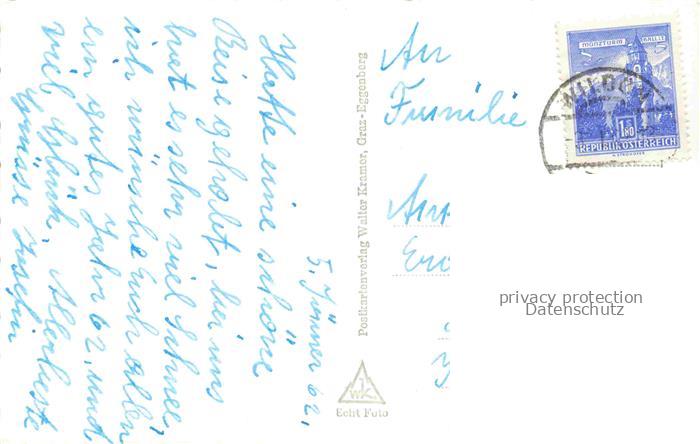 5. Jänner 62.
Hatte eine schöne
Reise gehabt, bei uns
hat es sehr viel Schnee,
ich wünsche Euch allen
ein gutes Jahr 62, und
viel Glück, Allerbeste
Grüsse
An
Familie
Postkartenverlag Walter Kramer, Graz-Eggenberg
WK
Echt Foto
MÜNZTURM HALL I.T.
1.80
REPUBLIK ÖSTERREICH
privacy protection
Datenschutz